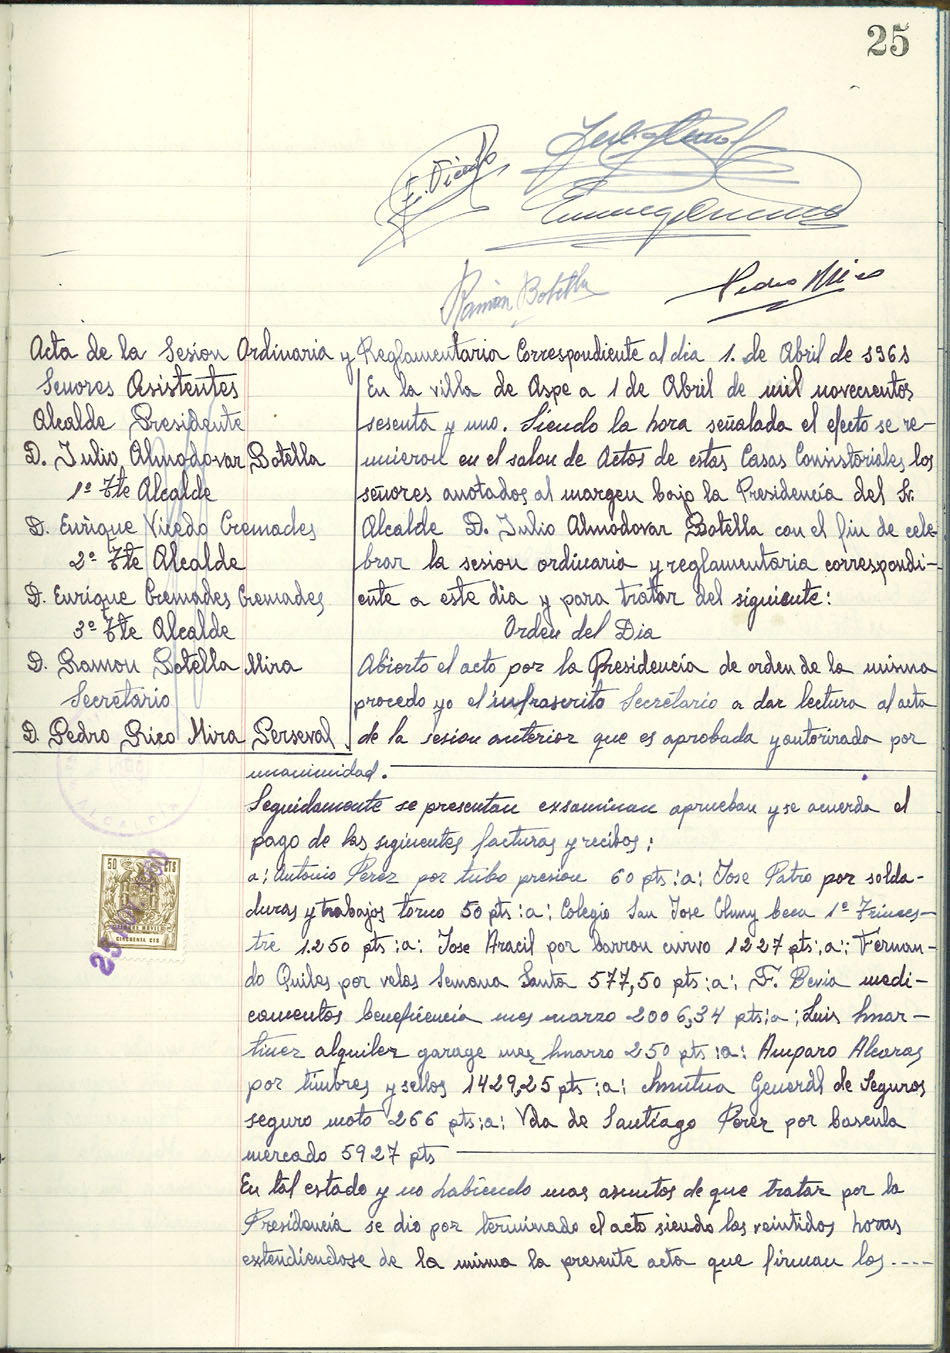 25
E. Vicedo
Ramón Botella
Pedro Mira
Acta de la Sesion Ordinaria y Reglamentaria Correspondiente al dia 1. de Abril de 1961
Senores Asistentes
Alcalde Presidente
D. Julio Almodovar Botella
1º Tte Alcalde
D. Enrique Vicedo Cremades
2º Tte Alcalde
D. Enrique Cremades Cremades
3º Tte Alcalde
D. Ramon Botella Mira
Secretario
D. Pedro Rico Mira Perseval.
En la villa de Aspe a 1 de Abril de mil novecientos
sesenta y uno. Siendo la hora señalada el efecto se re-
unieron en el salon de Actos de estas Casas Consistoriales los
señores anotados al margen bajo la Presidencia del Sr.
Alcalde D. Julio Almodovar Botella con el fin de cele-
brar la sesion ordinaria y reglamentaria correspondi-
ente a este dia y para tratar del siguiente:
Orden del Dia
Abierto el acto por la Presidencia de orden de la misma
procedo yo el infrascrito Secretario a dar lectura al acta
de la sesion anterior que es aprobada y autorirada por
unanimidad.
Seguidamente se presentan exsaminan aprueban y se acuerda el
pago de las siginentes facturas y recibos;
a; Antonio Perez por tubo presion 60 pts :a: Jose Patro por solda-
duras y trabajos torno 50 pts :a: Colegio San Jose Cluny beca 1º Trimes-
tre 1.250 pts :a: Jose Aracil por barron curvo 1227 pts :a: Fernan-
do Quiles por velas Semana Santa 577,50 pts :a: F. Bevia medi-
camentos beneficencia mes marzo 2006,34 pts :a; Luis Mar-
tinez alquiler garage mes Marzo 250 pts :a: Amparo Alcaras
por timbres y sellos 1429,25 pts :a: Mutua General de Seguros
seguro moto 266 pts :a: Vda de Santiago Perez por bascula
mercado 5927 pts
En tal estado y no habiendo mas asuntos de que tratar por la
Presidencia se dio por terminado el acto siendo las veintidos horas
extendiendose de la misma la presente acta que firman los ----
50 CTS
CINCUENTA CTS
ALCALDIA